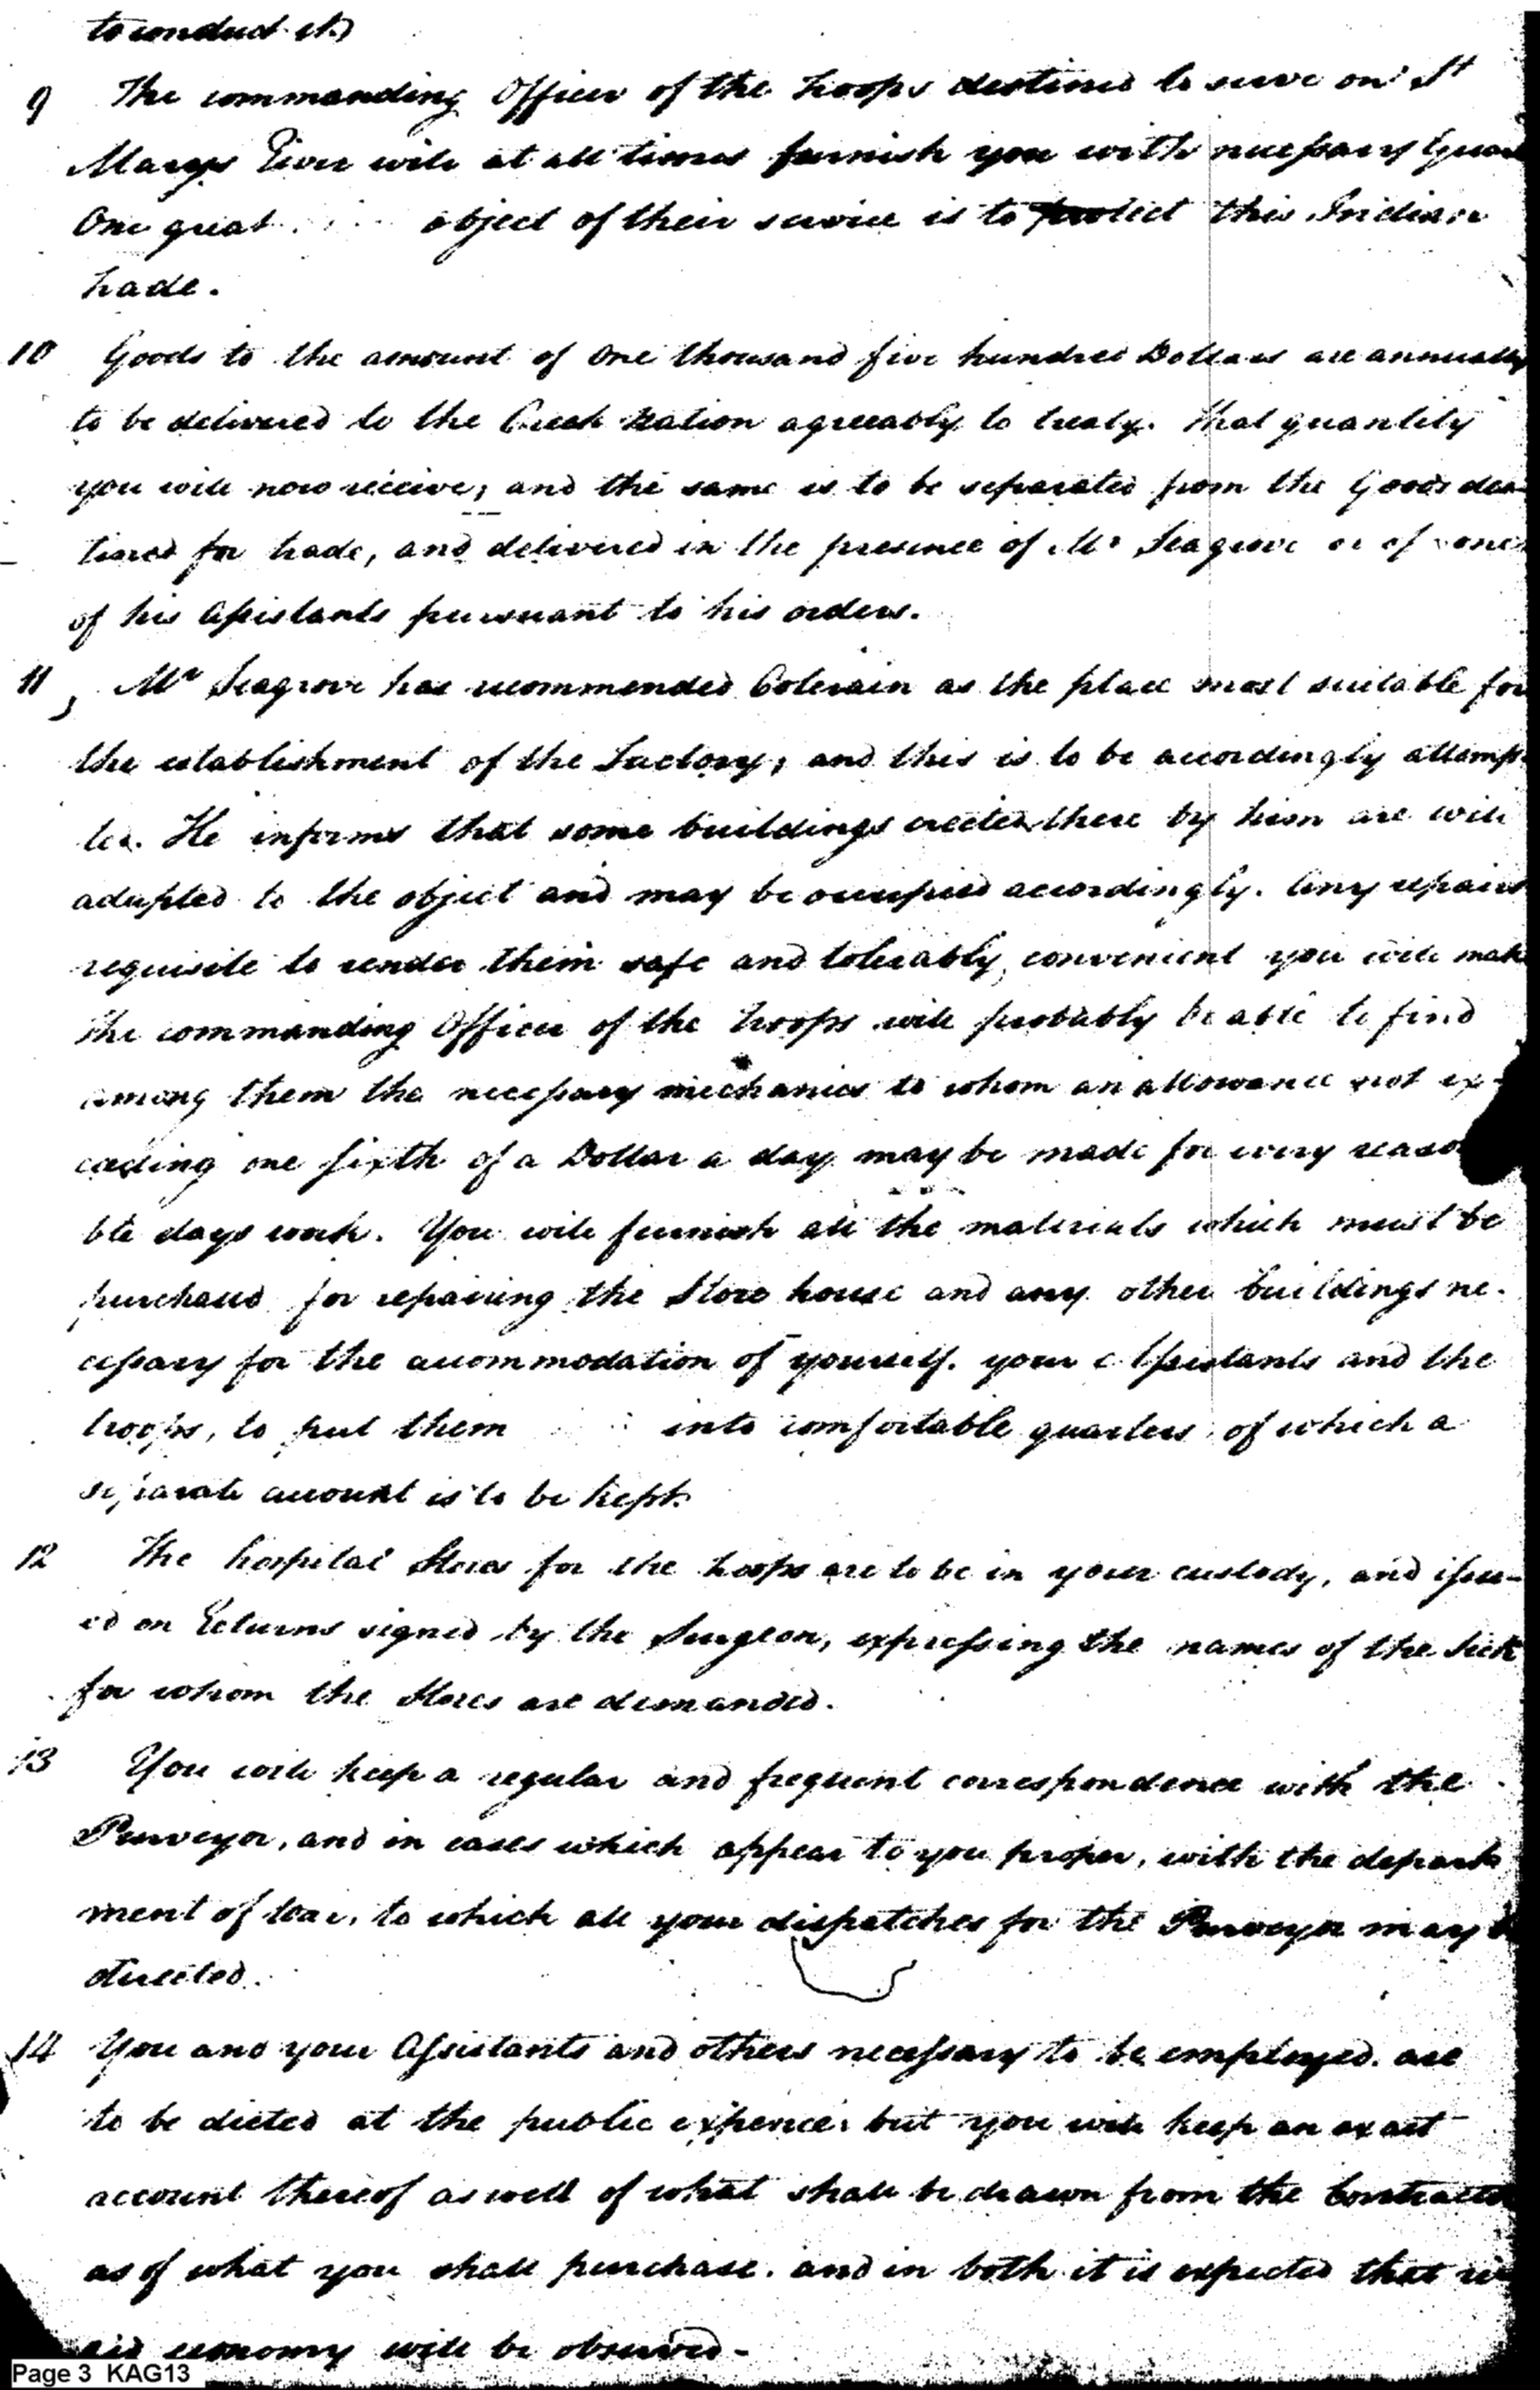 to conduct it.)
9 The commanding Officer of the troops destined to serve on St
Marys River will at all times furnish you with necessary Guar
One great object of their service is to protect this Indian
trade.
10 Goods to the amount of One thousand five hundred Dollars are annually
to be delivered to the Creek Nation agreeably to treaty. That quantity
you will now receive, and the same is to be separated from the Goods des
tined for trade, and delivered in the presence of Mr Seagrove or of one
of his Assistants pursuant to his orders.
11, Mr Seagrove has recommended Colerain as the place most suitable for
the establishment of the Factory, and this is to be accordingly attemp
ted. He informs that some buildings erected there by him are well
adapted to the object and may be occupied accordingly. Any repairs
requisite to render them safe and tolerably convenient you will mak
The commanding Officer of the troops will probably be able to find
among them the necessary mechanics to whom an allowance not ex-
ceeding one sixth of a Dollar a day may be made for every reaso
ble days work. You will furnish all the materials which must be
purchased for repairing the Store house and any other buildings ne-
cessary for the accommodation of yourself. your Assistants and the
troops, to put them into comfortable quarters of which a
separate account is to be kept.
12 The hospital Stores for the troops are to be in your custody, and issu-
ed on Returns signed by the Surgeon, expressing the names of the Sick
for whom the Stores are demanded.
13 You will keep a regular and frequent correspondence with the
Purveyor, and in cases which appear to you proper, with the depart
ment of War, to which all your dispatches for the Purveyor may b
directed.
14 You and your Assistants and others necessary to be employed. are
to be dieted at the public expence, but you will keep an exact
account thereof as well of what shall be drawn from the Contractor
as of what you shall purchase. and in both it is expected that ri
gid economy will be observed-
Page 3 KAG13